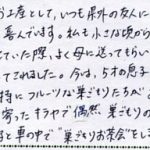 お土産として、いつも県外の友人に
喜んでいます。私も小さな頃から
ていた際、よく母に送ってもらい
てきれました。今は、5才の息子
特にフルーツな巣ごもりたちが
寄ったキラヤで偶然、巣ごもりの
すと車の中で"巣ごもりお茶会"をしま